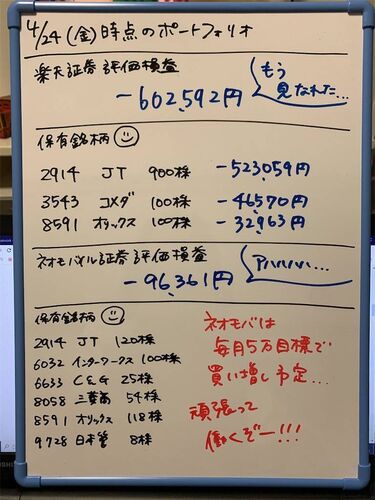 4/24(金)時点のポートフォリオ
楽天証券評価損益
-602,592円
もう
見なれた...
保有銘柄
2914 JT 900株 -523,059円
3543 コメダ 100株 -46,570円
8591 オリックス 100株 -32,963円
ネオモバイル証券評価損益
-96,361円
アハハハハ...
保有銘柄
2914 JT 120株
6032 インターワークス 100株
6633 C&G 25株
8058 三菱商 54株
8591 オリックス 118株
9728 日本管 8株
ネオモバは
毎月5万目標で
買い増し予定...
頑張って
働くぞー!!!